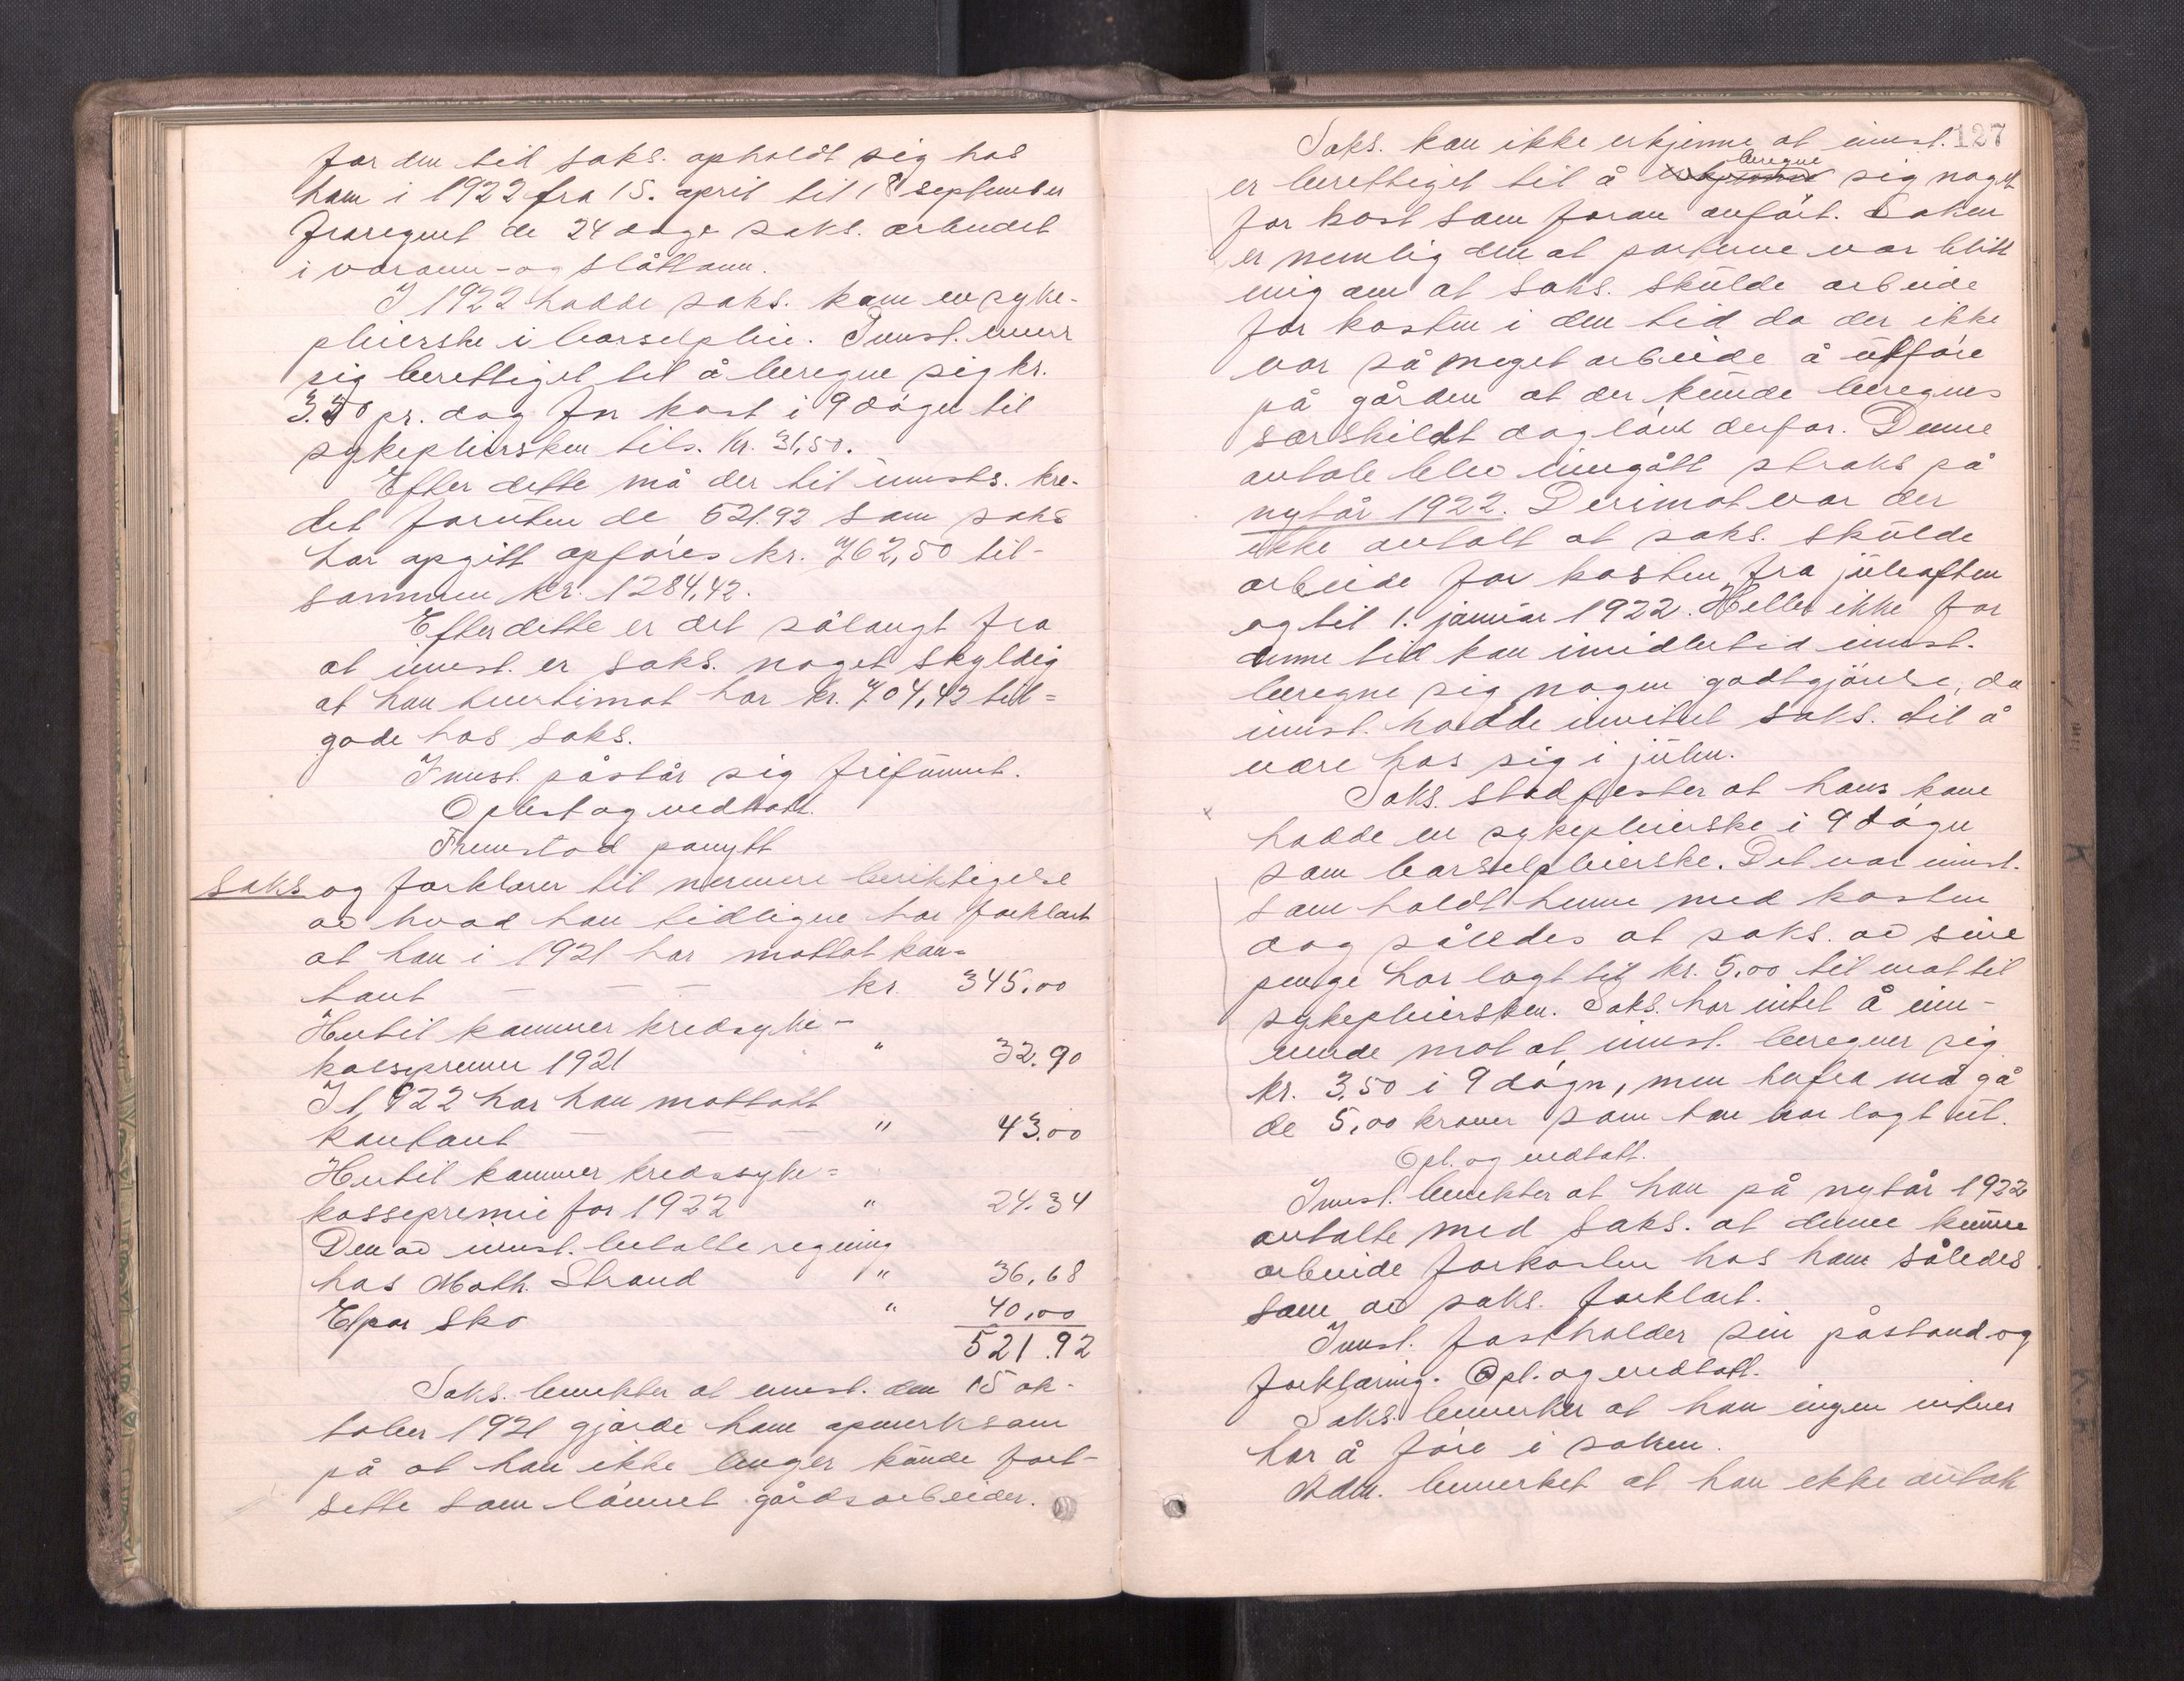 for den tid saks. opholdt sig hos
ham i 1922 fra 15. april til 18 september
fraregnet de 24 dage saks. arbeidet
i våronn- og slåttonn.
I 1922 hadde saks. kone en syke-
pleierske i barselpleie. Innst. mener
sig berettiget til å beregne sig kr.
3.50 pr. dag for kost i 9 døgn til
sykepleiersken tils. kr. 31,50.
Efter dette må der til innsts. kre-
dit foruten de 521.92 som saks
har opgitt opføres kr. 762,50 til-
sammen kr. 1284,42.
Efter dette er det sålangt fra
at innst. er saks. noget skyldig
at han tvertimot har kr. 704,42 til=
gode hos saks.
Innst. påstår sig frifunnet.
Oplest og vedtatt.
Fremstod panytt
saks. og forklarer til nermere beriktigelse
av hvad han tidligere har forklart
at han i 1921 har mottat kon=
tant — — — kr. 345.00
Hertil kommer kredssyke-
kassepremie 1921 " 32.90
I 1922 har han mottatt
kontant — — — " 43.00
Hertil kommer kredssyke=
kassepremie for 1922 " 24.34
Den av innst. betalte regning
hos Math. Strand " 36,68
Et par sko " 40,00
521.92
Saks. bemerker at innst. den 15 ok-
tober 1921 gjorde ham opmerksom
på at han ikke lenger kunde fort-
sette som lønnet gårdsarbeider.
127
Saks. kan ikke erkjenne at innst.
beregne
er berettiget til å sig noget
for kost som foran anført. Saken
er nemlig den at parterne var blitt
enig om at saks. skulde arbeide
for kosten i den tid da der ikke
var så meget arbeide å utføre
på gården at der kunde beregnes
særskildt dagløn derfor. Denne
avtale blev inngått straks på
nytår 1922. Derimot var der
ikke avtalt at saks. skulde
arbeide for kosten fra juleaften
og til 1. januar 1922. Heller ikke for
denne tid kan imidlertid innst.
beregne sig nogen godtgjørelse, da
innst. hadde invitert saks. til å
være hos sig i julen.
Saks. stadfester at hans kone
hadde en sykepleierske i 9 døgn
som barselpleierske. Det var innst.
som holdt henne med kosten
dog således at saks. av sine
penge har lagt til kr. 5,00 til mat til
sykepleiersken. Saks. har intet å inn-
vende mot at innst. beregner sig
kr. 3,50 i 9 døgn, men herfra må gå
de 5,00 kroner som han har lagt ut.
Opl. og vedtatt.
Innst. bemerker at han på nytår 1922
avtalte med saks. at denne kunne
arbeide for kosten hos ham således
som av saks. forklart.
Innst. fastholder sin påstand og
forklaring. Opl. og vedtatt.
Saks. bemerker at han ingen vitner
har å føre i saken.
Adm. bemerket at han ikke antok